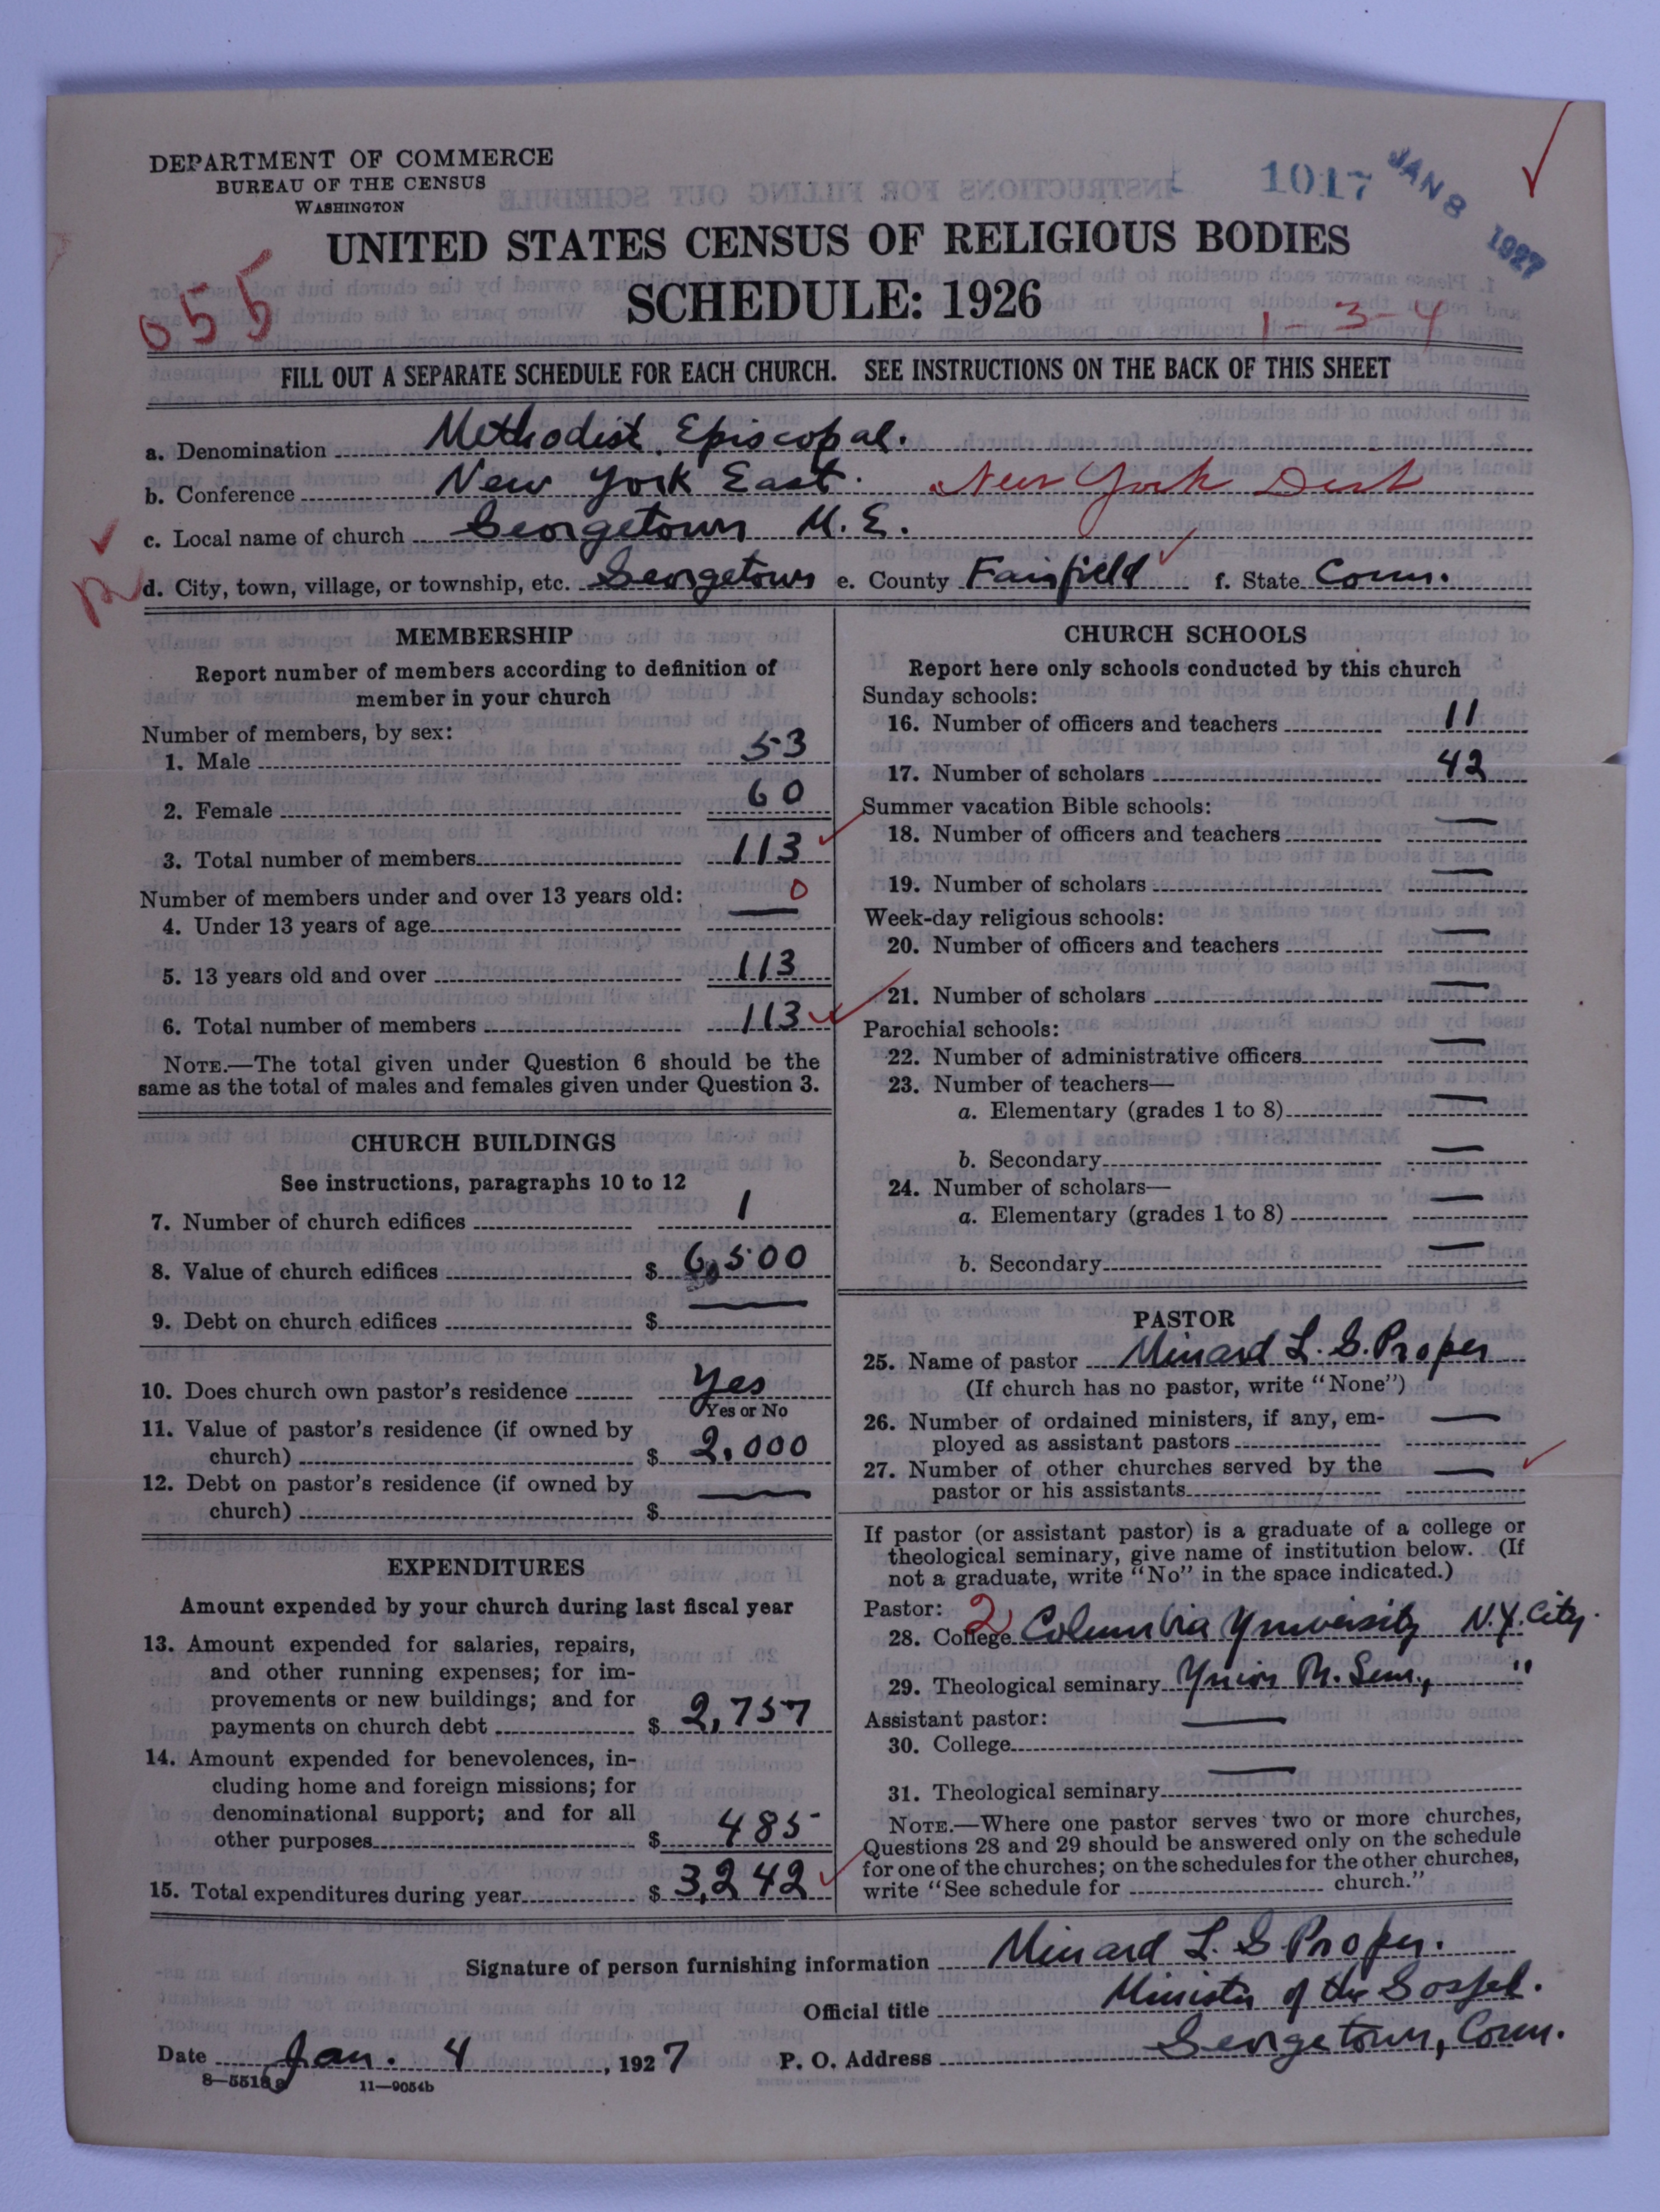 DEPARTMENT OF COMMERCE
BUREAU OF THE CENSUS
WASHINGTON
1017
JAN 8 1927
UNITED STATES CENSUS OF RELIGIOUS BODIES
SCHEDULE: 1926
055
1-3-4
FILL OUT A SEPARATE SCHEDULE FOR EACH CHURCH. SEE INSTRUCTIONS ON THE BACK OF THIS SHEET
a. Denomination Methodist Episcopal.
b. Conference New York East. New York Dist
c. Local name of church Georgetown M.E.
d. City, town, village, or township, etc. Georgetown e. County Fairfield f. State Conn.
MEMBERSHIP
Report number of members according to definition of
member in your church
Number of members, by sex:
1. Male 53
2. Female 60
3. Total number of members 113
Number of members under and over 13 years old: 0
4. Under 13 years of age —
5. 13 years old and over 113
6. Total number of members 113
NOTE.—The total given under Question 6 should be the
same as the total of males and females given under Question 3.
CHURCH BUILDINGS
See instructions, paragraphs 10 to 12
7. Number of church edifices 1
8. Value of church edifices $ 6,500
9. Debt on church edifices $ —
10. Does church own pastor's residence Yes
Yes or No
11. Value of pastor's residence (if owned by
church) $ 2,000
12. Debt on pastor's residence (if owned by
church) $ —
EXPENDITURES
Amount expended by your church during last fiscal year
13. Amount expended for salaries, repairs,
and other running expenses; for im-
provements or new buildings; and for
payments on church debt $ 2,757
14. Amount expended for benevolences, in-
cluding home and foreign missions; for
denominational support; and for all
other purposes $ 485
15. Total expenditures during year $ 3,242
CHURCH SCHOOLS
Report here only schools conducted by this church
Sunday schools:
16. Number of officers and teachers 11
17. Number of scholars 42
Summer vacation Bible schools:
18. Number of officers and teachers —
19. Number of scholars —
Week-day religious schools:
20. Number of officers and teachers —
21. Number of scholars —
Parochial schools:
22. Number of administrative officers —
23. Number of teachers—
a. Elementary (grades 1 to 8) —
b. Secondary —
24. Number of scholars—
a. Elementary (grades 1 to 8) —
b. Secondary —
PASTOR
25. Name of pastor Minard L. G. Proper
(If church has no pastor, write "None")
26. Number of ordained ministers, if any, em-
ployed as assistant pastors —
27. Number of other churches served by the
pastor or his assistants —
If pastor (or assistant pastor) is a graduate of a college or
theological seminary, give name of institution below. (If
not a graduate, write "No" in the space indicated.)
Pastor: 2
28. College Columbia University N.Y. City.
29. Theological seminary Union Th. Sem., "
Assistant pastor:
30. College —
31. Theological seminary —
NOTE.—Where one pastor serves two or more churches,
Questions 28 and 29 should be answered only on the schedule
for one of the churches; on the schedules for the other churches,
write "See schedule for church."
Signature of person furnishing information Minard L. G. Proper.
Official title Minister of the Gospel.
Date Jan. 4, 1927 P. O. Address Georgetown, Conn.
11—9054b